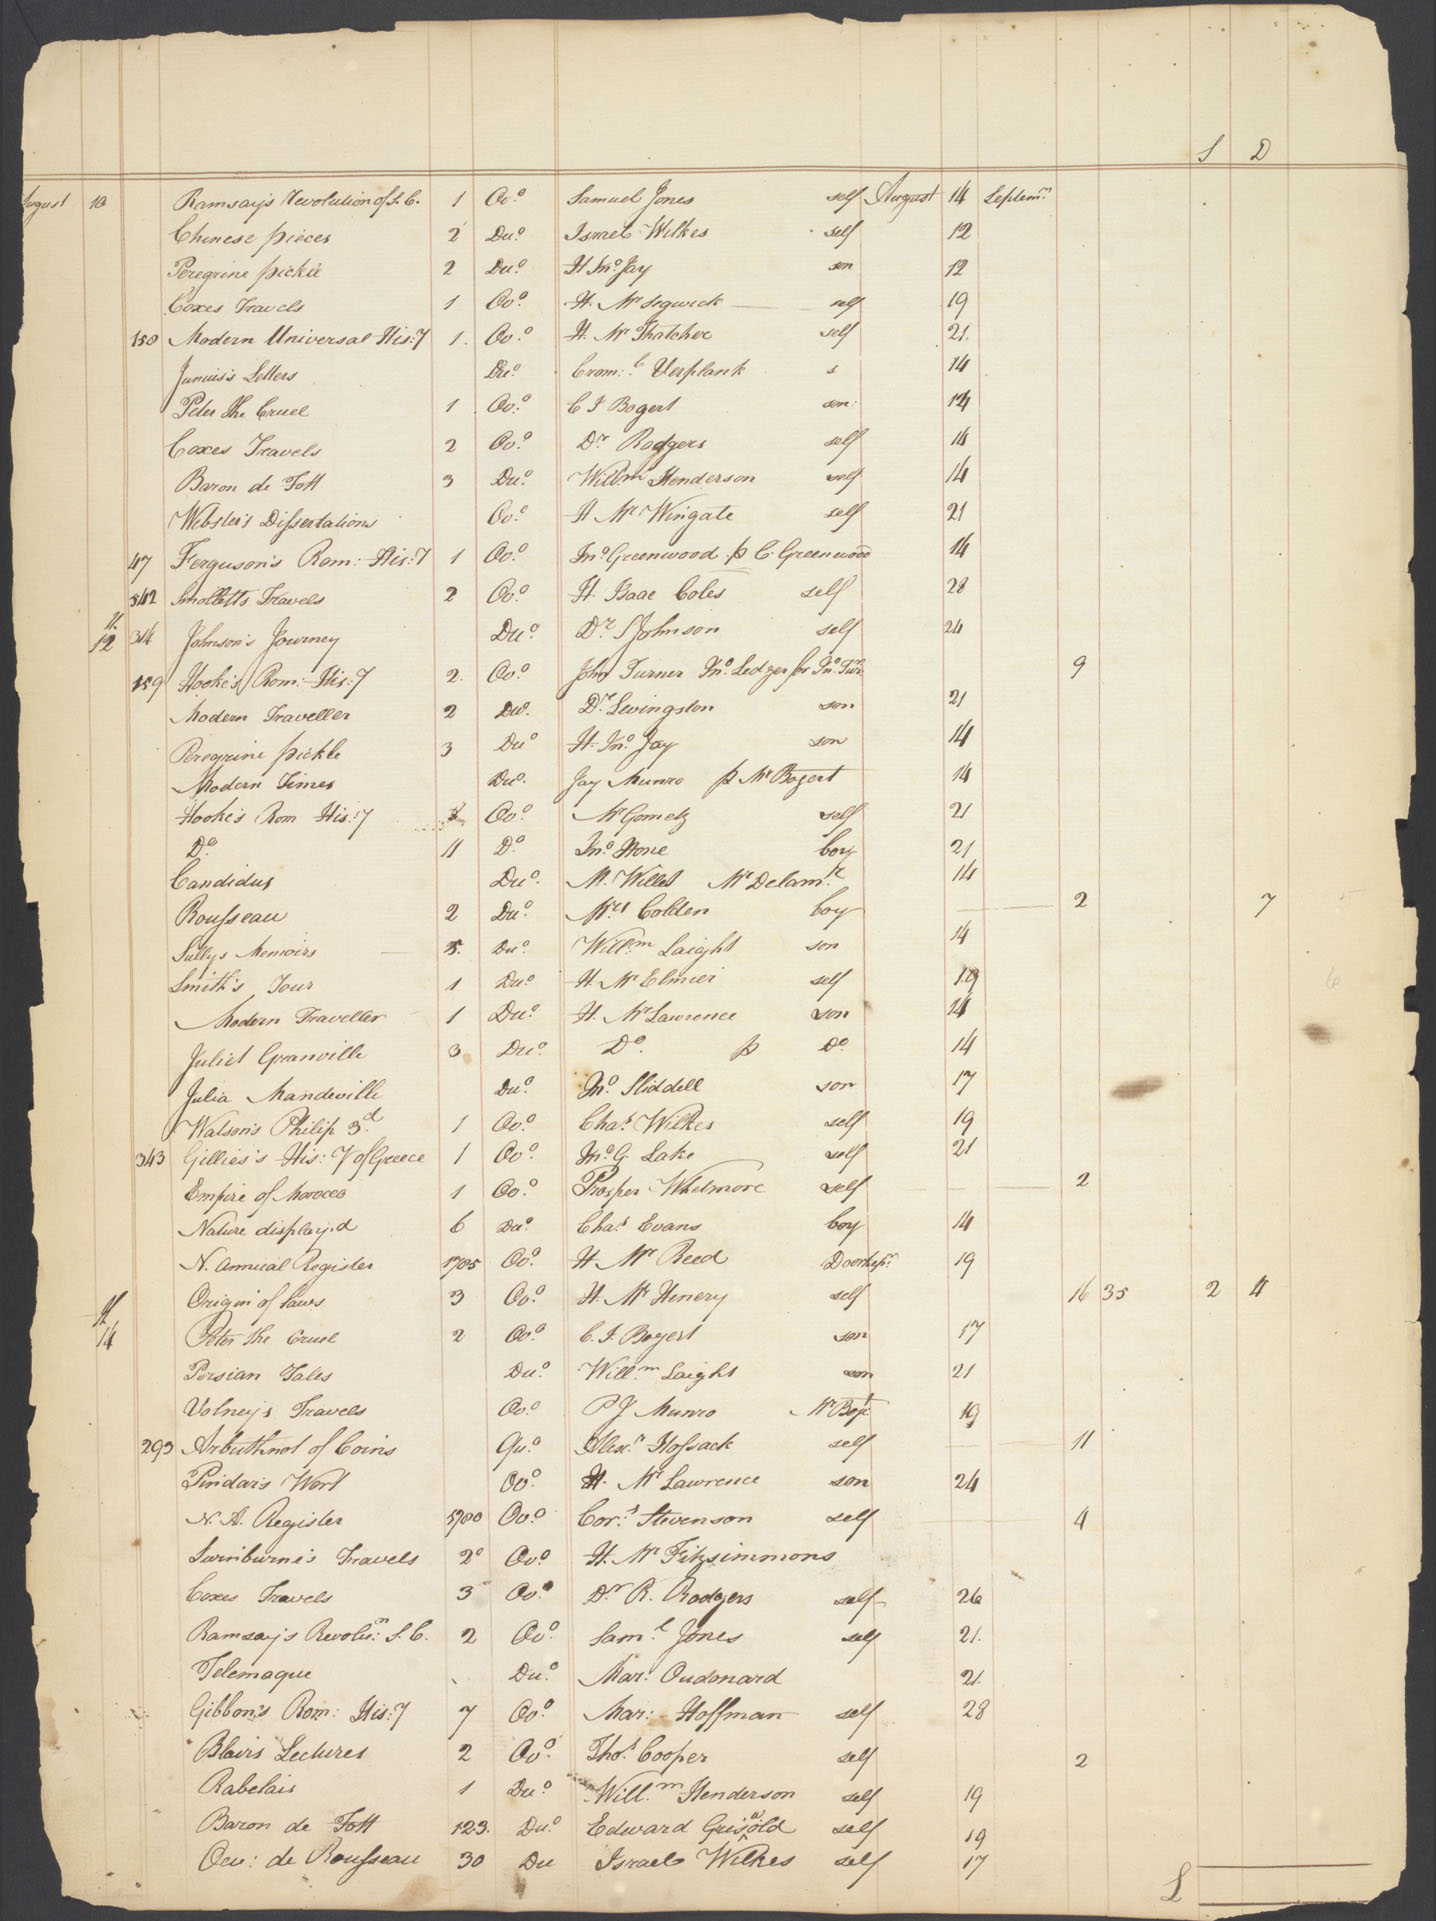 S D
August 10 Ramsay's Revolution of S. C. 1 Ov.º Samuel Jones self August 14 Septem.r
Chinese pieces 2 Du.º Israel Wilkes self 12
Peregrine pickle 2 Du.º H Jn.º Jay son 12
Coxes Travels 1 Ov.º H. Mr Segwick self 19
150 Modern Universal His:y 1. Ov.º H. Mr Thatcher self 21.
Junius's Letters Du.º Crom:l Verplank s 14
Peter the Cruel 1 Ov.º C I Bogert son: 14
Coxes Travels 2 Ov.º Dr Rodgers self 14
Baron de Tott 3 Du.º Will.m Henderson self 14
Webster's Dissertations Ov.º H Mr Wingate self 21
47 Ferguson's Rom: His:y 1 Ov.º Jn.º Greenwood p C. Greenwood 14
342 Smolletts Travels 2 Ov.º H. Isaac Coles self 28
11.
12 314 Johnson's Journey Du.º Dr. S Johnson self 24
159 Hooke's Rom: His:y 2. Ov.º John Turner Jn.º Ledger for Jn.º Tur.r 9
Modern Traveller 2 Du.º Dr. Levingston son 21
Peregrine pickle 3 Du.º H. Jn.º Jay son 14
Modern Times Du.º Jay Munro p Mr Bogert 14
Hooke's Rom His:y Ov.º Mr Gometz self 21
D.º 11 D.º Jn.º Hone boy 21
Candidus Du.º M. Willet Mr Delam.r 14
Rousseau 2 Du.º Mrs Colden boy 2 7
Sullys Memoirs 5. Du.º Will.m Laight son 14
Smith's Tour 1 Du.º H. Mr Elmer self 19
Modern Traveller 1 Du.º H. Mr Lawrence son 14
Juliet Granville 3 Du.º D.º p D.º 14
Julia Mandeville Du.º Jn.º Sliddell son 17
Watson's Philip 3.d 1 Ov.º Cha.s Wilkes self 19
343 Gillies's His:y of Greece 1 Ov.º Jn.º G. Lake self 21
Empire of Morocco 1 Ov.º Prosper Whetmore self 2
Nature display.d 6 Du.º Cha.s Evans boy 14
N. Annual Register 1785 Ov.º H Mr Reed Doorkep.r 19
Origin of Laws 3 Ov.º H. Mr Henery self 16 35 2 4
14 Peter the Cruel 2 Ov.º C. I. Bogert son 17
Persian Tales Du.º Will.m Laight son 21
Volney's Travels Ov.º P J Munro Mr Bog.t 19
293 Arbuthnot of Coins Qu.º Alex.r Hossack self 11
Pindar's Work Ov.º H. Mr Lawrence son 24
N. A. Register 1780 Ov.º Cor.s Stevenson self 4
Swinburne's Travels 2 Ov.º H. Mr Fitzsimmons
Coxes Travels 3 Ov.º Dr R. Rodgers self 26
Ramsay's Revolu:n S. C. 2 Ov.º Sam.l Jones self 21.
Telemaque Du.º Mar: Oudenard 21.
Gibbon's Rom: His:y 7 Ov.º Mar: Hoffman self 28
Blairs Lectures 2 Ov.º Tho.s Cooper self 2
Rabelais 1 Du.º Will.m Henderson self 19
Baron de Tott 123. Du.º Edward Griswold self 19
Ouv: de Rousseau 30 Du Israel Wilkes self 17
L